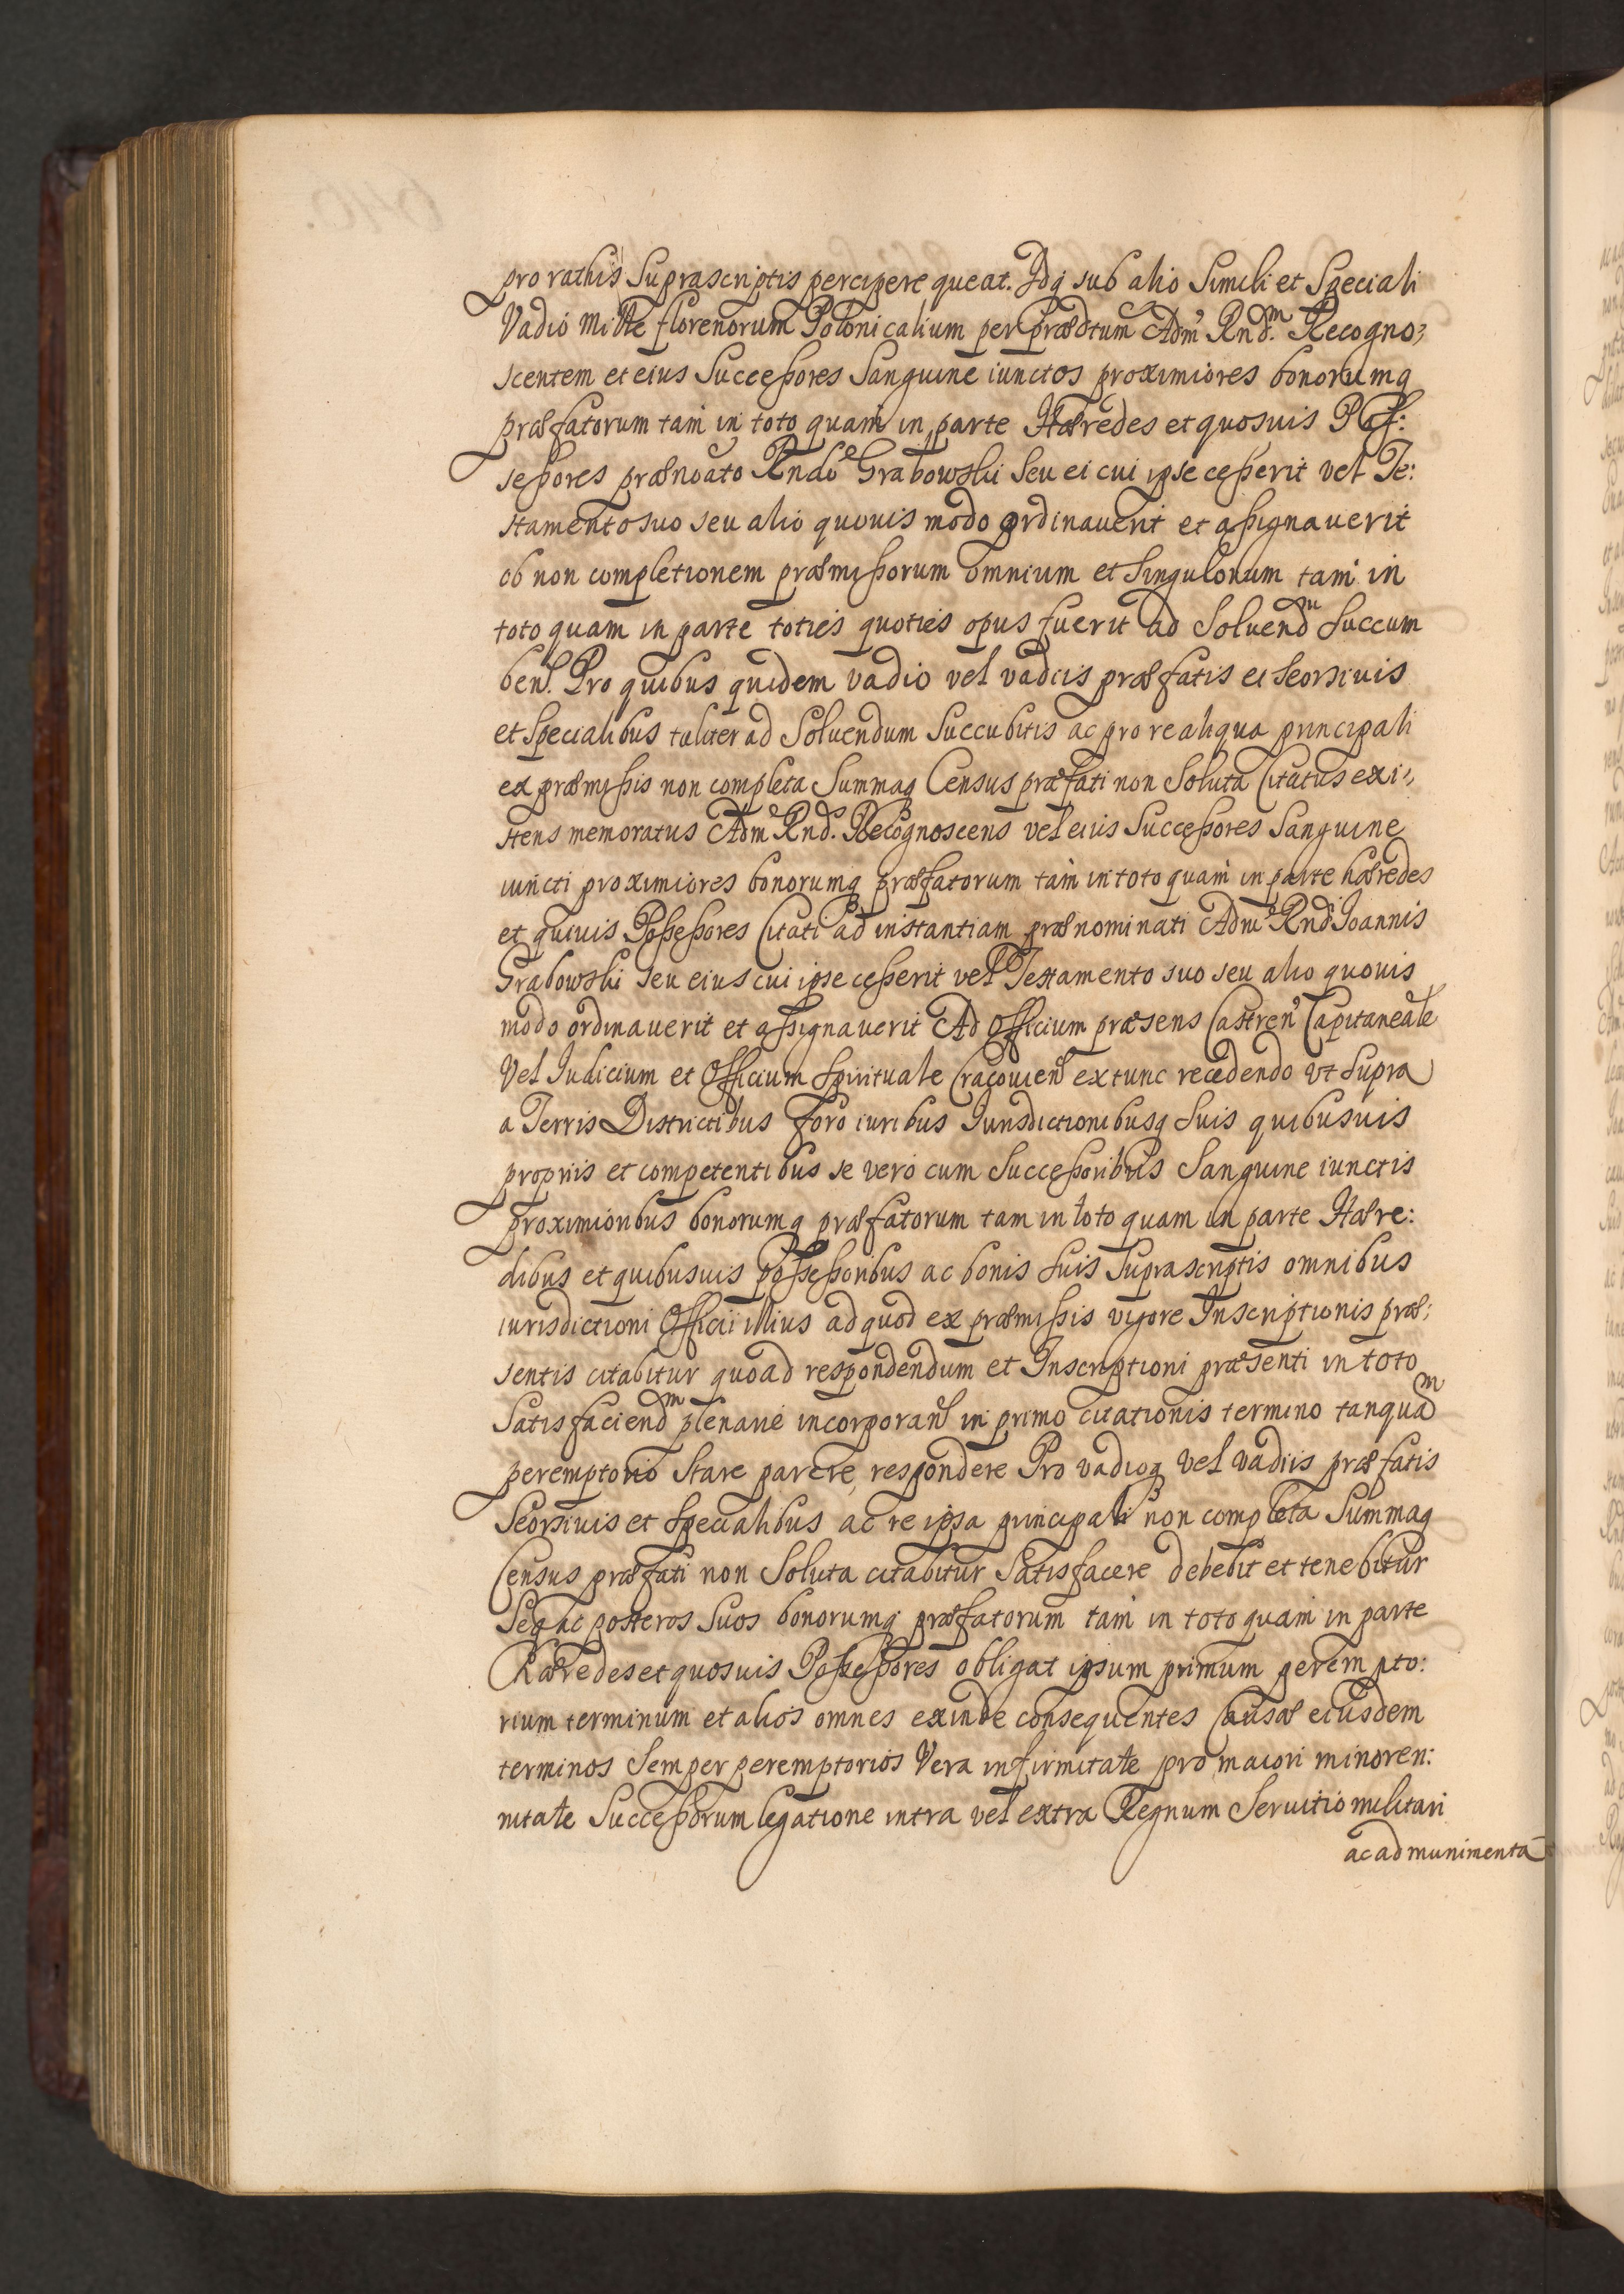 pro rathis Suprascriptis percipere queat. Idq sub alio Simili et Speciali
Vadio Mille florenorum Polonicalium per prædtum Adm Rndm. Recogno:
scentem et eius Successores Sanguine iunctos proximiores bonorumq
præfatorum tam in toto quam in parte Hæredes et quosuis Pos:
sessores prænoato Rndo Grabowski seu ei cui ipse cesserit vel Te:
stamento suo seu alio quouis modo ordinauerit et assignauerit
ob non completionem præmissorum omnium et singulorum tam in
toto quam in parte toties quoties opus fuerit ad Soluendm succum
ben. Pro quibus quidem vadio vel vadiis præfatis ei seorsiuis
et Specialibus taliter ad Soluendum Succubitis ac pro re aliqua principali
ex præmissis non completa Summaq Census præfati non Soluta Citatus exi:
stens memoratus Adm Rnds. Recognoscens vel eius Successores Sanguine
iuncti proximiores bonorumq præfatorum tam in toto quam in parte hæredes
et quiuis Possessores Citati ad instantiam prænominati Adm Rndi Joannis
Grabowski seu eius cui ipse cesserit vel Testamento suo seu alio quouis
modo ordinauerit et assignauerit Ad Officium præsens Castren Capitaneale
Vel Iudicium et Officium Spirituale Cracouien extunc recedendo vt supra
a Terris Districtibus foro iuribus Iurisdictionibusq suis quibusuis
propriis et competentibus se vero cum Successoribus Sanguine iunctis
proximioribus bonorumq præfatorum tam in toto quam in parte Hære:
dibus et quibusuis possessoribus ac bonis suis Suprascriptis omnibus
iurisdictioni Officii illius ad quod ex præmissis vigore Inscriptionis præ:
sentis citabitur quoad respondendum et Inscriptioni præsenti in toto
Satisfaciendm plenarie incorporan in primo citationis termino tanquam
peremptorio stare parere respondere Pro vadioq vel vadiis præfatis
Seorsiuis et Specialibus ac re ipsa principali non completa Summaq
Census præfati non Soluta citabitur satisfacere debebit et tenebitur
Seq ac posteros suos bonorumq præfatorum tam in toto quam in parte
Hæredes et quosuis Possessores obligat ipsum primum perempto:
rium terminum et alios omnes exinde consequentes Causæ eiusdem
terminos semper peremptorios Vera infirmitate pro maiori minoren:
nitate Successorum legatione intra vel extra Regnum Seruitio militari
ac ad munimenta